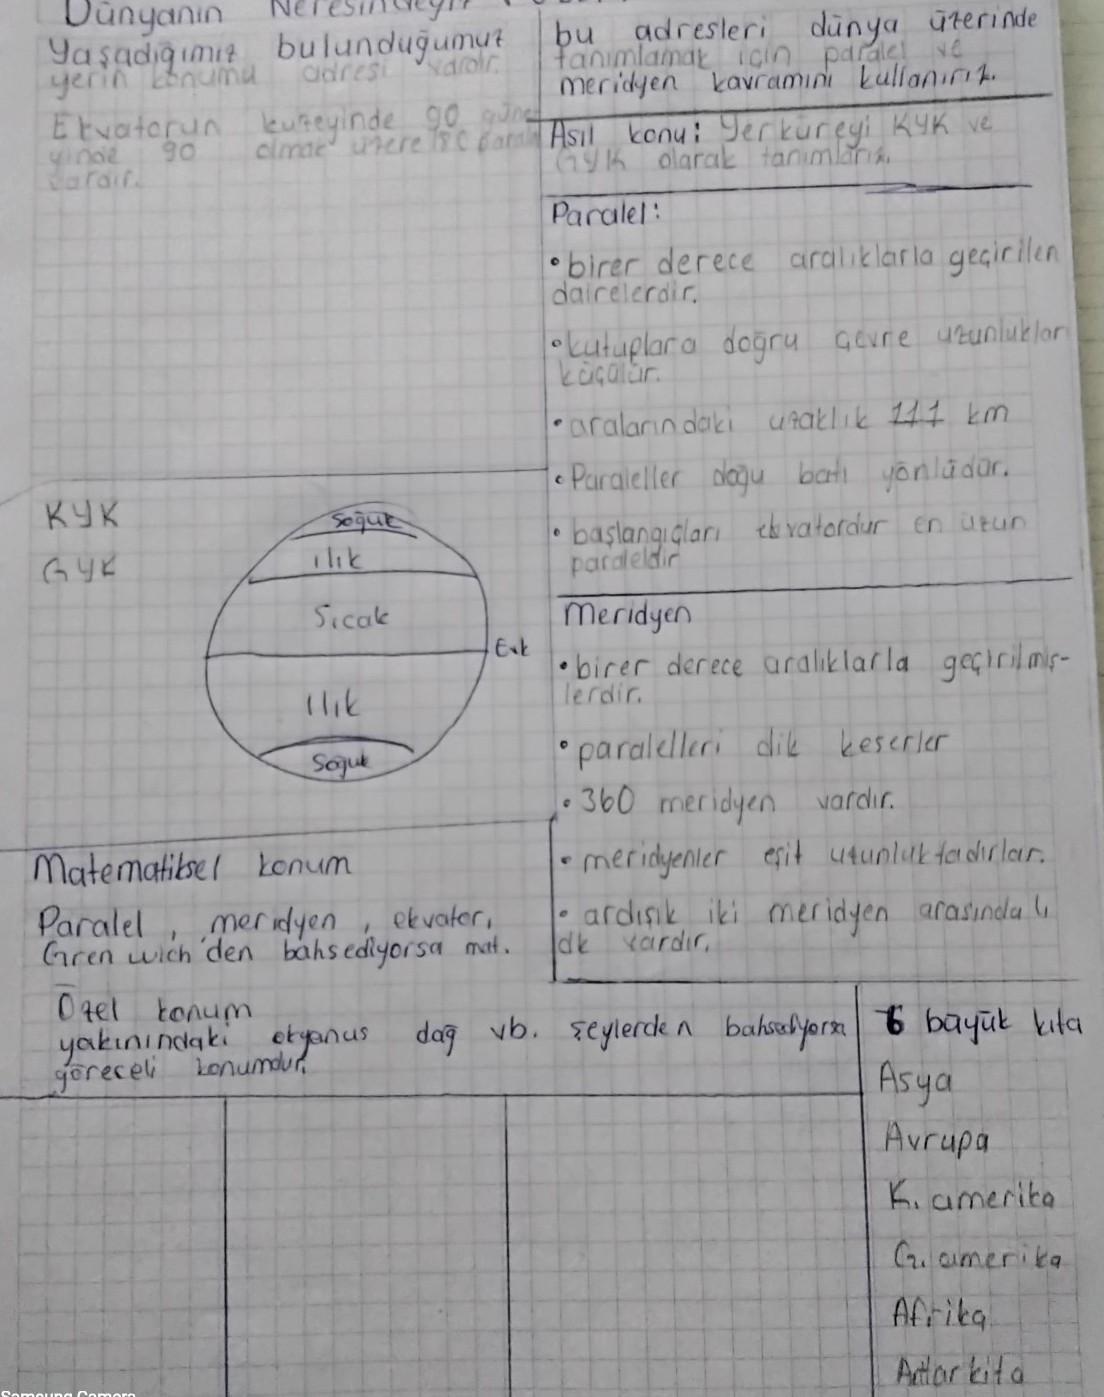 Dünyanın Neresindeyiz
Yaşadığımız bulunduğumuz
yerin konumu adresi vardır.
Ekvatorun kuzeyinde 90 güne
yinde 90 olmak üzere 180 paralel
vardır.
bu adresleri dünya üzerinde
tanımlamak için paralel ve
meridyen kavramını kullanırız.
Asıl konu: Yerküreyi KYK ve
GYK olarak tanımlarız.
Paralel:
•birer derece aralıklarla geçirilen
dairelerdir.
•kutuplara doğru çevre uzunlukları
küçülür.
•aralarındaki uzaklık 111 km
•Paraleller doğu batı yönlüdür.
•başlangıçları ekvatordur en uzun
paraleldir
KYK
GYK
Soğuk
ılık
Sıcak
Ekv
Ilık
Soğuk
Meridyen
•birer derece aralıklarla geçirilmiş-
lerdir.
•paralelleri dik keserler
•360 meridyen vardır.
•meridyenler eşit uzunluktadırlar.
•ardışık iki meridyen arasında 4
dk vardır.
Matematiksel konum
Paralel, meridyen, ekvator,
Gren wich'den bahsediyorsa mat.
Özel konum
yakınındaki okyanus dağ vb. şeylerden bahsediyorsa
göreceli konumdur.
6 büyük kıta
Asya
Avrupa
K. amerika
G. amerika
Afrika
Antarkita
Samsung Camera